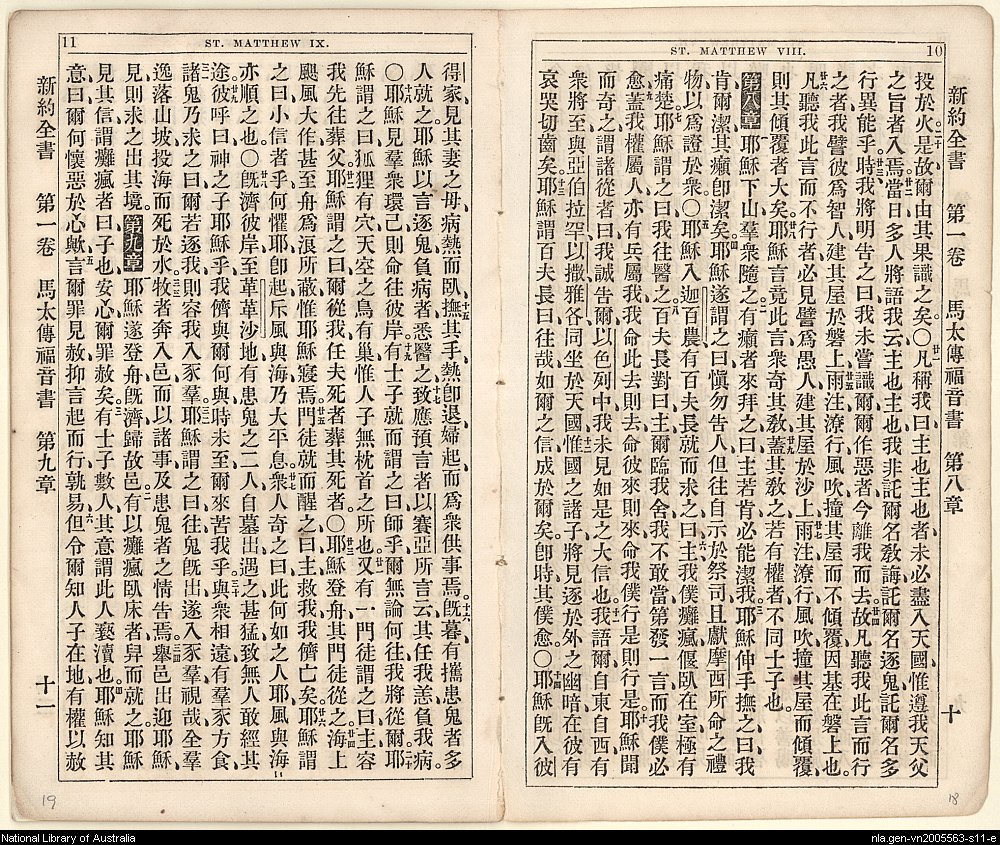 ST. MATTHEW VIII.
10
新約全書 第一卷 馬太傳福音書 第八章 十
投於火是故爾由其果識之矣○凡稱我曰主也主也者未必盡入天國惟遵我天父
之旨者入焉當日多人將語我云主也主也我非託爾名教誨託爾名逐鬼託爾名多
行異能乎時我將明告之曰我未嘗識爾爾作惡者今離我而去故凡聽我此言而行
之者我譬彼爲智人建其屋於磐上雨注潦行風吹撞其屋而不傾覆因基在磐上也
凡聽我此言而不行者必見譬爲愚人建其屋於沙上雨注潦行風吹撞其屋而傾覆
則其傾覆者大矣耶穌言竟此言衆奇其教蓋其教之若有權者不同士子也
第八章 耶穌下山羣衆隨之有癩者來拜之曰主若肯必能潔我耶穌伸手撫之曰我
肯爾潔其癩卽潔矣耶穌遂謂之曰愼勿告人但往自示於祭司且獻摩西所命之禮
物以爲證於衆○耶穌入迦百農有百夫長就而求之曰主我僕癱瘋偃臥在室極有
痛楚耶穌謂之曰我往醫之百夫長對曰主爾臨我舍我不敢當第發一言而我僕必
愈蓋我權屬人亦有兵屬我我命此去則去命彼來則來命我僕行是則行是耶穌聞
而奇之謂諸從者曰我誠告爾以色列中我未見如是之大信也我語爾自東自西有
衆將至與亞伯拉罕以撒雅各同坐於天國惟國之諸子將見逐於外之幽暗在彼有
哀哭切齒矣耶穌謂百夫長曰往哉如爾之信成於爾矣卽時其僕愈○耶穌旣入彼
18
11
ST. MATTHEW IX.
得家見其妻之母病熱而臥撫其手熱卽退婦起而爲衆供事焉旣暮有攜患鬼者多
人就之耶穌以言逐鬼負病者悉醫之致應預言者以賽亞所言云其任我恙負我病
○耶穌見羣衆環己則命往彼岸有士子就而謂之曰師乎爾無論何往我將從爾耶
穌謂之曰狐狸有穴天空之鳥有巢惟人子無枕首之所也又有一門徒謂之曰主容
我先往葬父耶穌謂之曰爾從我任夫死者葬其死者○耶穌登舟其門徒從之海上
颶風大作甚至舟爲浪所蔽惟耶穌寢焉門徒就而醒之曰主救我我儕亡矣耶穌謂
之曰小信者乎何懼耶卽起斥風與海乃大平息衆人奇之曰此何如之人耶風與海
亦順之也○旣濟彼岸至革革沙地有患鬼之二人自墓出遇之甚猛致無人敢經其
途彼呼曰神之子耶穌乎我儕與爾何與時未至爾來苦我乎與衆相遠有羣豕方食
諸鬼乃求之曰爾若逐我則容我入豕羣耶穌謂之曰往鬼旣出遂入豕羣視哉全羣
逸落山坡投海而死於水牧者奔入邑而以諸事及患鬼者之情告焉舉邑出迎耶穌
見則求之出其境 第九章 耶穌遂登舟旣濟歸故邑有以癱瘋臥床者舁而就之耶穌
見其信謂癱瘋者曰子也安心爾罪赦矣有士子數人其意謂此人褻瀆也耶穌知其
意曰爾何懷惡於心歟言爾罪見赦抑言起而行孰易但令爾知人子在地有權以赦
新約全書 第一卷 馬太傳福音書 第九章 十一
19
National Library of Australia
nla.gen-vn2005563-s11-e